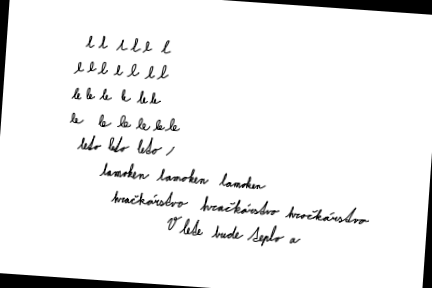 l l l l l l
l l l l l l l
le le le le le le
le le le le le le
leto leto leto /
lamoken lamoken lamoken
hračkárstvo hračkárstvo hračkárstvo
V lete bude teplo a